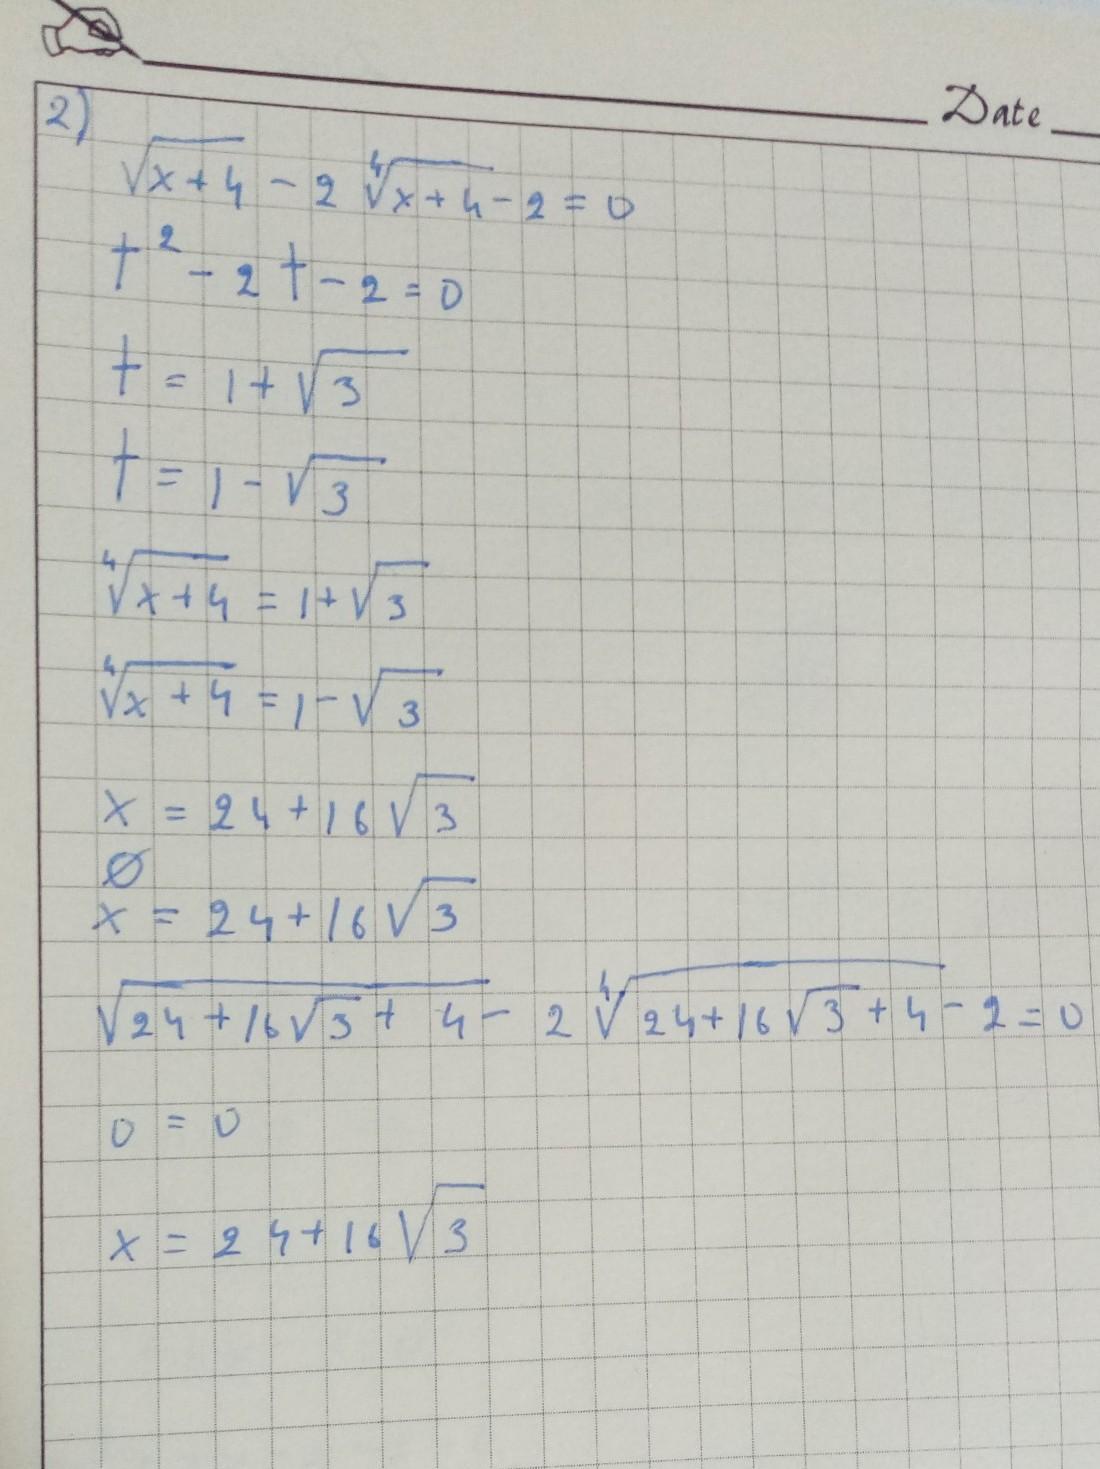 Date
2)
√(x+4) - 2 ∜(x+4) - 2 = 0
t² - 2t - 2 = 0
t = 1 + √3
t = 1 - √3
∜(x+4) = 1 + √3
∜(x+4) = 1 - √3
x = 24 + 16√3
∅
x = 24 + 16√3
√(24 + 16√3 + 4) - 2 ∜(24 + 16√3 + 4) - 2 = 0
0 = 0
x = 24 + 16√3